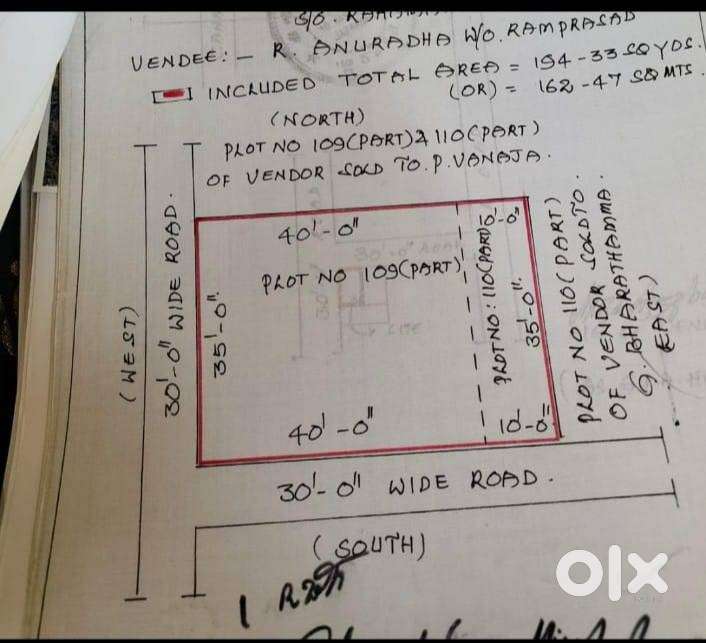 S/O. RAM
VENDEE:- R. ANURADHA W/O. RAMPRASAD
INCLUDED TOTAL AREA = 194-33 SQ YDS.
(OR) = 162-47 SQ MTS.
(NORTH)
PLOT NO 109(PART) & 110(PART)
OF VENDOR SOLD TO. P. VANAJA.
(WEST)
30'-0" WIDE ROAD.
40'-0"
10'-0"
PLOT NO 109(PART)
35'-0"
PLOT NO: 110(PART)
35'-0"
40'-0"
10'-0"
PLOT NO 110(PART)
OF VENDOR SOLD TO
G. BHARATHAMMA.
EAST)
30'-0" WIDE ROAD.
(SOUTH)
1
olx